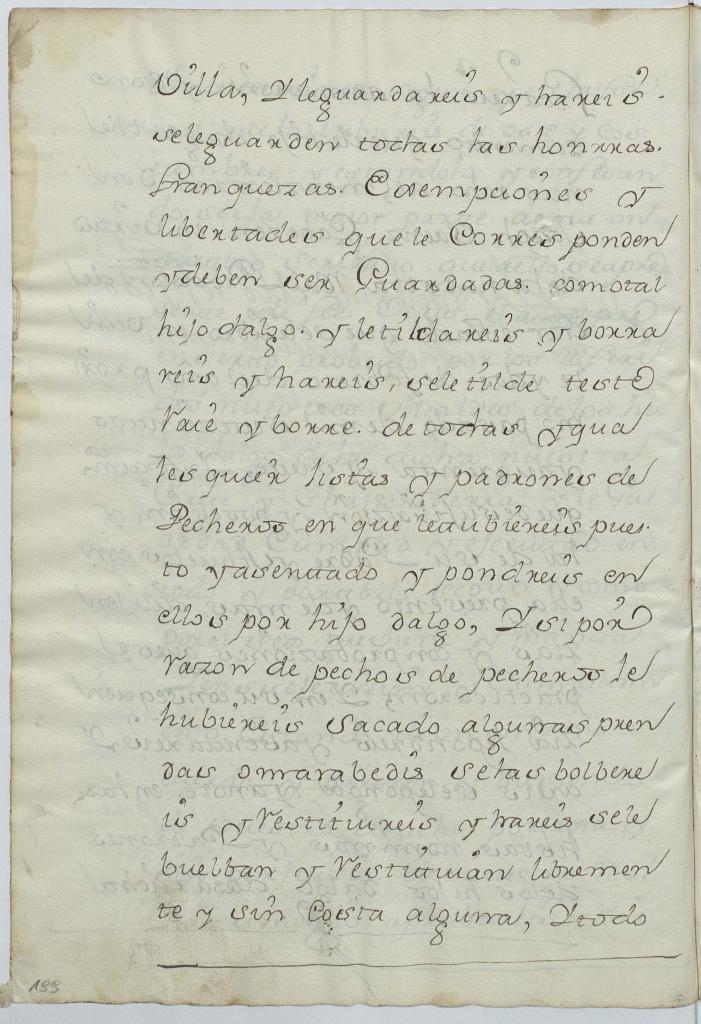 Villa, Y leguardareis y hareis.
seleguarden todas las honrras.
franquezas. Exempciones y
libertades que le Corresponden
ydeben ser Guardadas. comotal
hijo dalgo. y letildareis y borra
reis y hareis, seletilde teste
raie yborre. de todas yqua
lesquier listas y padrones de
Pecheros en que letubiereis pues.
to yasentado y pondreis en
ellos por hijo dalgo, Y si por
razon de pechos de pecheros le
hubiereis sacado algunas pren
das omarabedis selas bolbere
is yrestituireis y hareis sele
buelban y restituian libremen
te y sin Costa alguna, Ytodo
199